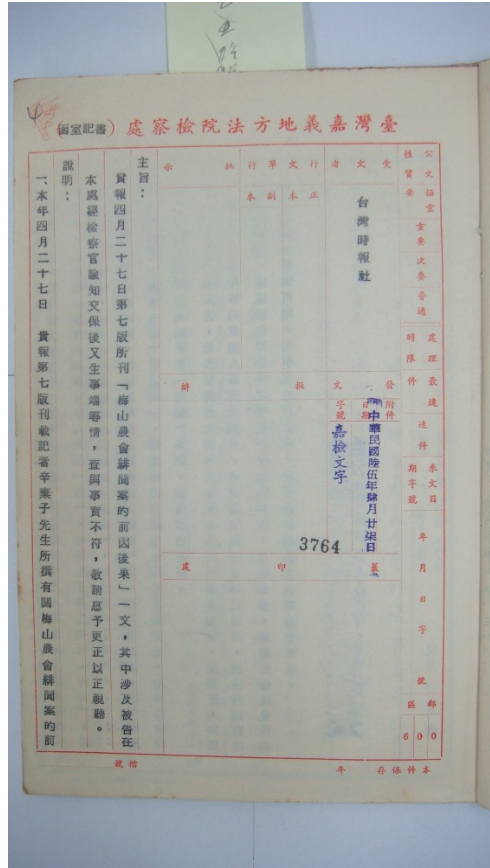 臺灣嘉義地方法院檢察處（書記室函）
公文性質
極重要
重要
次要
普通
處理時限
最速件
速件
來文日期字號
年 月 日 字 號
郵區
600
受文者
台灣時報社
行文單
正本
副本
行
批示
發文
附件
日期
中華民國陸伍年肆月廿柒日
字號
嘉檢文字
3764
擬辦
蓋印處
主旨：
貴報四月二十七日第七版所刊「梅山農會緋聞案的前因後果」一文，其中涉及被告在
本處經檢察官諭知交保後又生事端等情，查與事實不符，敬請惠予更正以正視聽。
說明：
一、本年四月二十七日 貴報第七版刊載記者辛棄子先生所撰有關梅山農會緋聞案的前
本件保存 年
檔號